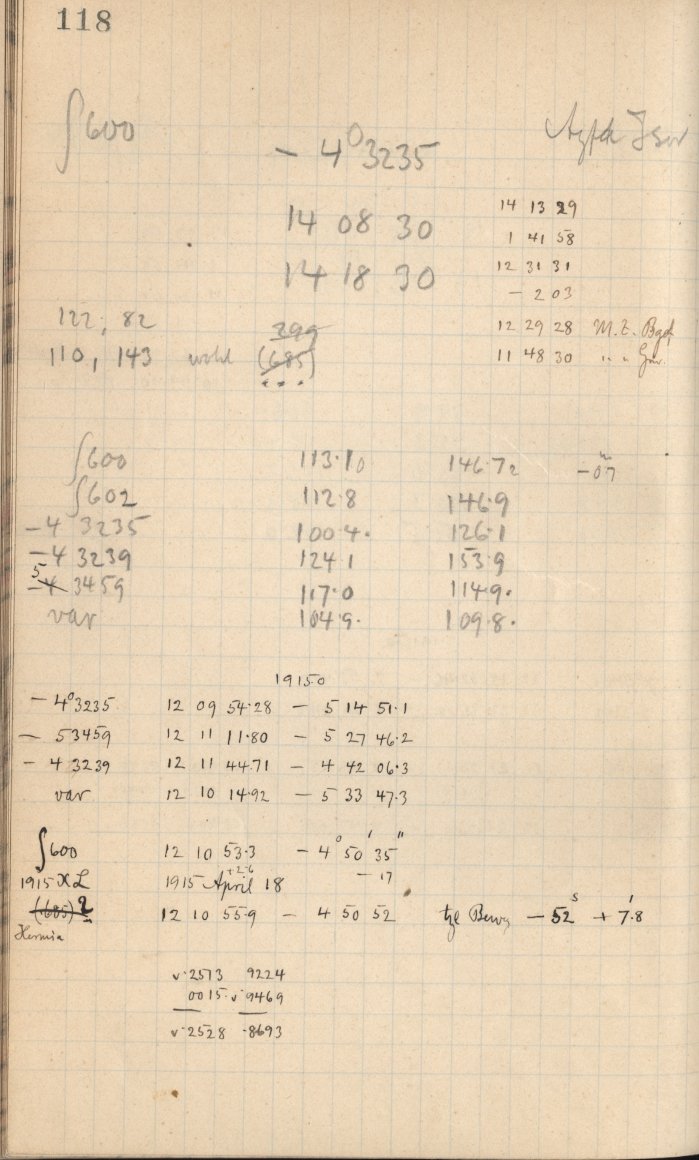 118
∫600
− 4° 3235
14 08 30
14 18 30
14 13 29
1 41 58
12 31 31
− 2 03
12 29 28 M. Z. Bgdf
11 48 30 " "
122, 82
299
110, 143 wohl (685)
∫600 113·10 146·72 −0·7
∫602 112·8 146·9
−4 3235 100·4· 126·1
−4 3239 124·1 153·9
−5 3459 117·0 114·9·
var 104·9· 109·8·
1915·0
− 4°3235 12 09 54·28 − 5 14 51·1
− 5 3459 12 11 11·80 − 5 27 46·2
− 4 3239 12 11 44·71 − 4 42 06·3
var 12 10 14·92 − 5 33 47·3
∫600 12 10 53·3 − 4° 50′ 35″
+2·6 − 17
1915 XL 1915 April 18
(685) ? 12 10 55·9 − 4 50 52 tgl Bewg − 52ˢ + 7′.8
Hermia
v·2513 9224
0015 v·9469
v·2528 ·8693